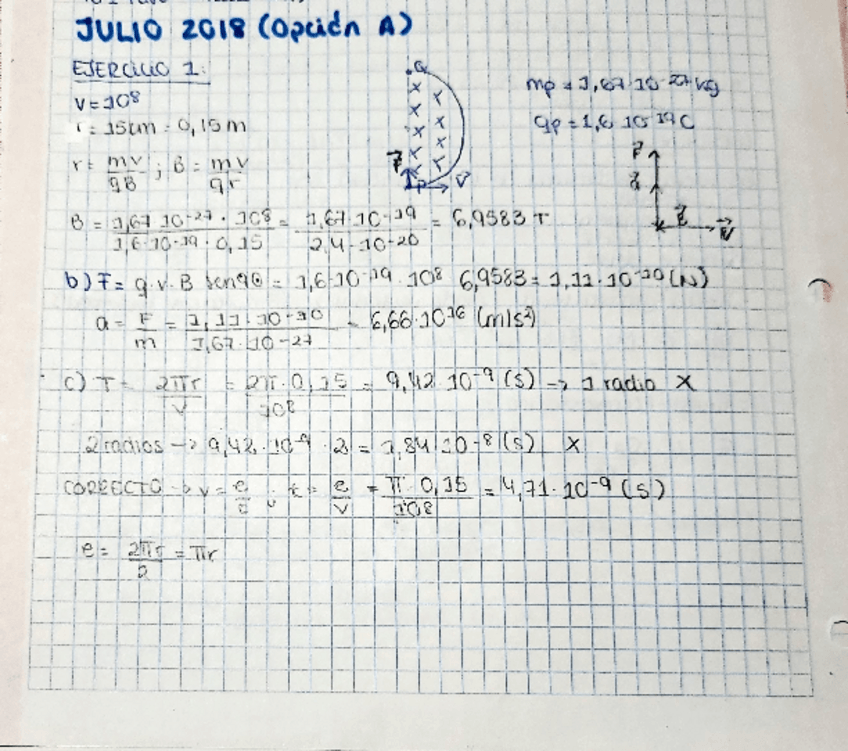 JULIO 2018 (Opción A)
EJERCICIO 1:
V = 10⁸
r = 15cm = 0,15 m
r = mv/qB ; B = mv/qr
Q
P
V
mp = 1,67·10⁻²⁷ kg
qp = 1,6·10⁻¹⁹ C
B = 1,67·10⁻²⁷ · 10⁸ / 1,6·10⁻¹⁹ · 0,15 = 1,67·10⁻¹⁹ / 2,4·10⁻²⁰ = 6,9583 T
b) F = q·v·B sen90 = 1,6·10⁻¹⁹ · 10⁸ 6,9583 = 1,11·10⁻¹⁰ (N)
a = F/m = 1,11·10⁻¹⁰ / 1,67·10⁻²⁷ = 6,66·10¹⁶ (m/s²)
c) T = 2πr/v = 2π·0,15/10⁸ = 9,42·10⁻⁹ (s) → 1 radio X
2 radios → 9,42·10⁻⁹ · 2 = 1,84·10⁻⁸ (s) X
CORRECTO → v = e/t ; t = e/v = π·0,15/10⁸ = 4,71·10⁻⁹ (s)
e = 2πr/2 = πr